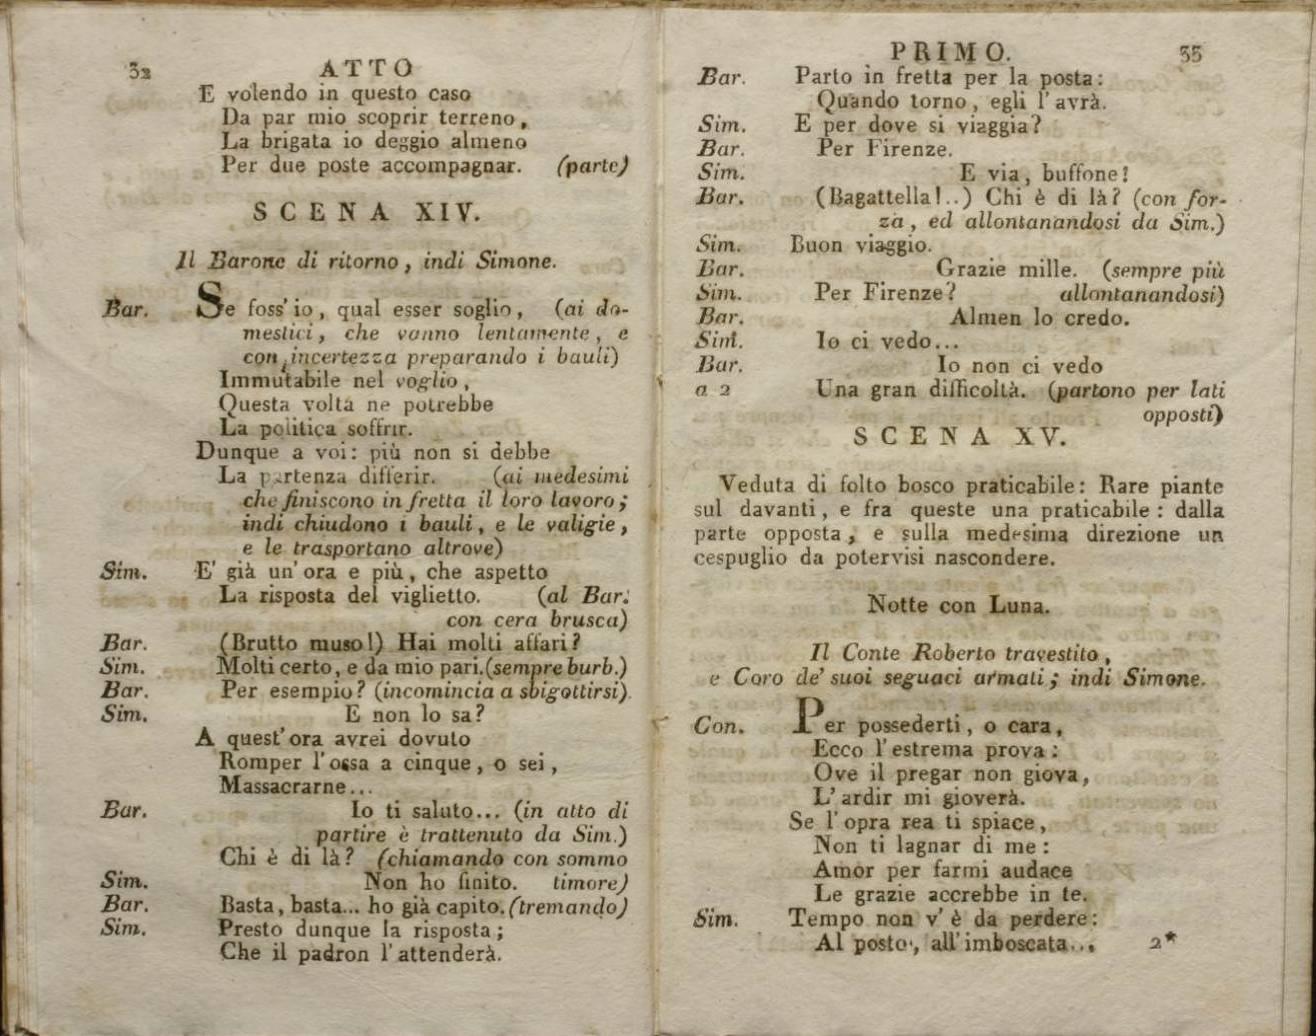 32 ATTO
E volendo in questo caso
Da par mio scoprir terreno,
La brigata io deggio almeno
Per due poste accompagnar. (parte)
SCENA XIV.
Il Barone di ritorno, indi Simone.
Bar. Se foss' io, qual esser soglio, (ai do-
mestici, che vanno lentamente, e
con incertezza preparando i bauli)
Immutabile nel voglio,
Questa volta ne potrebbe
La politica soffrir.
Dunque a voi: più non si debbe
La partenza differir. (ai medesimi
che finiscono in fretta il loro lavoro;
indi chiudono i bauli, e le valigie,
e le trasportano altrove)
Sim. E' già un' ora e più, che aspetto
La risposta del viglietto. (al Bar.
con cera brusca)
Bar. (Brutto muso!) Hai molti affari?
Sim. Molti certo, e da mio pari. (sempre burb.)
Bar. Per esempio? (incomincia a sbigottirsi)
Sim. E non lo sa?
A quest' ora avrei dovuto
Romper l' ossa a cinque, o sei,
Massacrarne...
Bar. Io ti saluto... (in atto di
partire è trattenuto da Sim.)
Chi è di là? (chiamando con sommo
Sim. Non ho finito. timore)
Bar. Basta, basta... ho già capito. (tremando)
Sim. Presto dunque la risposta;
Che il padron l' attenderà.
PRIMO. 33
Bar. Parto in fretta per la posta:
Quando torno, egli l' avrà.
Sim. E per dove si viaggia?
Bar. Per Firenze.
Sim. E via, buffone!
Bar. (Bagattella!..) Chi è di là? (con for-
za, ed allontanandosi da Sim.)
Sim. Buon viaggio.
Bar. Grazie mille. (sempre più
Sim. Per Firenze? allontanandosi)
Bar. Almen lo credo.
Sim. Io ci vedo...
Bar. Io non ci vedo
a 2 Una gran difficoltà. (partono per lati
opposti)
SCENA XV.
Veduta di folto bosco praticabile: Rare piante
sul davanti, e fra queste una praticabile: dalla
parte opposta, e sulla medesima direzione un
cespuglio da potervisi nascondere.
Notte con Luna.
Il Conte Roberto travestito,
e Coro de' suoi seguaci armati; indi Simone.
Con. Per possederti, o cara,
Ecco l' estrema prova:
Ove il pregar non giova,
L' ardir mi gioverà.
Se l' opra rea ti spiace,
Non ti lagnar di me:
Amor per farmi audace
Le grazie accrebbe in te.
Sim. Tempo non v' è da perdere:
Al posto, all' imboscata... 2*